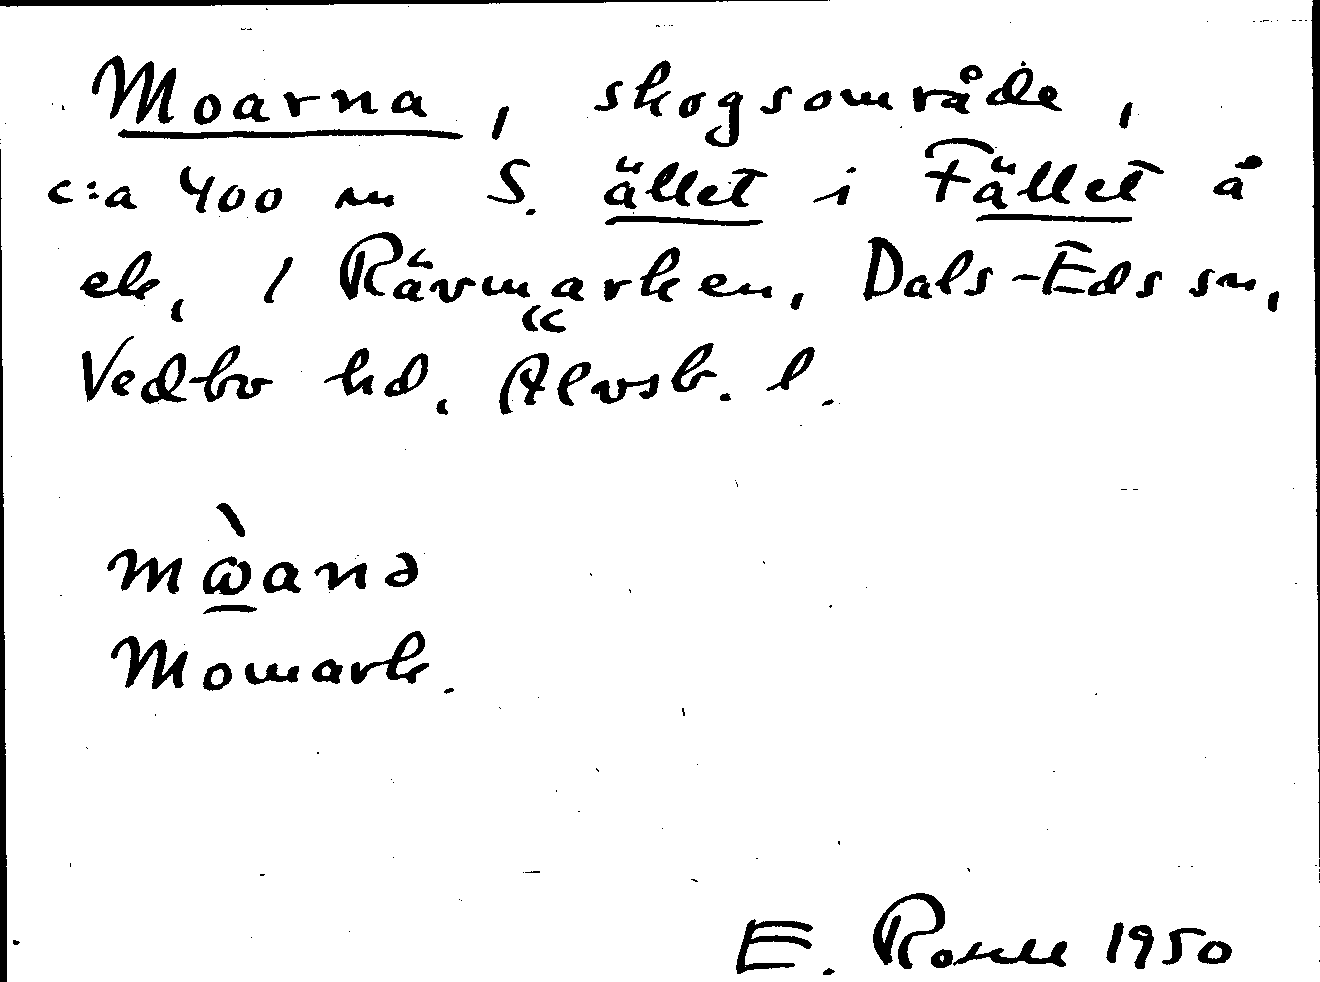 Moarna, skogsområde,
c:a 400 m S. ället i Fället å
ek, 1 Rävmarken, Dals-Eds sn,
Vedbo hd. Älvsb. l.
mꞷ̀anə
Momark.
E. 1950